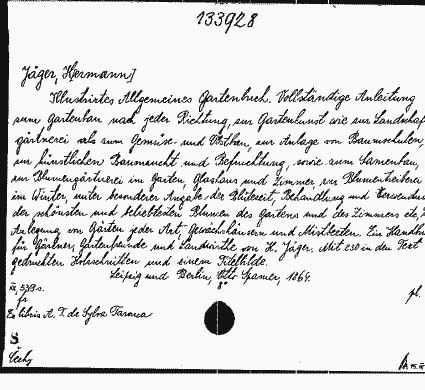 133928
Jäger, Hermann]
Illustrirtes Allgemeines Gartenbuch. Vollständige Anleitung
zum Gartenbau nach jeder Richtung, zur Gartenkunst wie zur Landschafts
gärtnerei als zum Gemüse- und Obstbau, zur Anlage von Baumschulen,
zur künstlichen Baumzucht und Befruchtung, sowie zum Samenbau,
zur Blumengärtnerei im Garten, Glashaus und Zimmer zur Blumentreiberei
im Winter, unter besonderer Angabe der Blütezeit, Behandlung und Verwendung
der schönsten und beliebtesten Blumen des Gartens und des Zimmers etc, 
Anlegung von Gärten jeder Art, Gewächshäusern und Mistbeeten. Ein Handbuch
für Gärtner, Gartenfreunde und Landwirthe von H. Jäger. Mit 230 in den Text
gedruckten Holzschnitten und einem Titelbilde.
Leipzig und Berlin, Otto Spamer, 1864.
8°
fr
Ex libris A. T. de Sylva Tarouca
S
Čechy